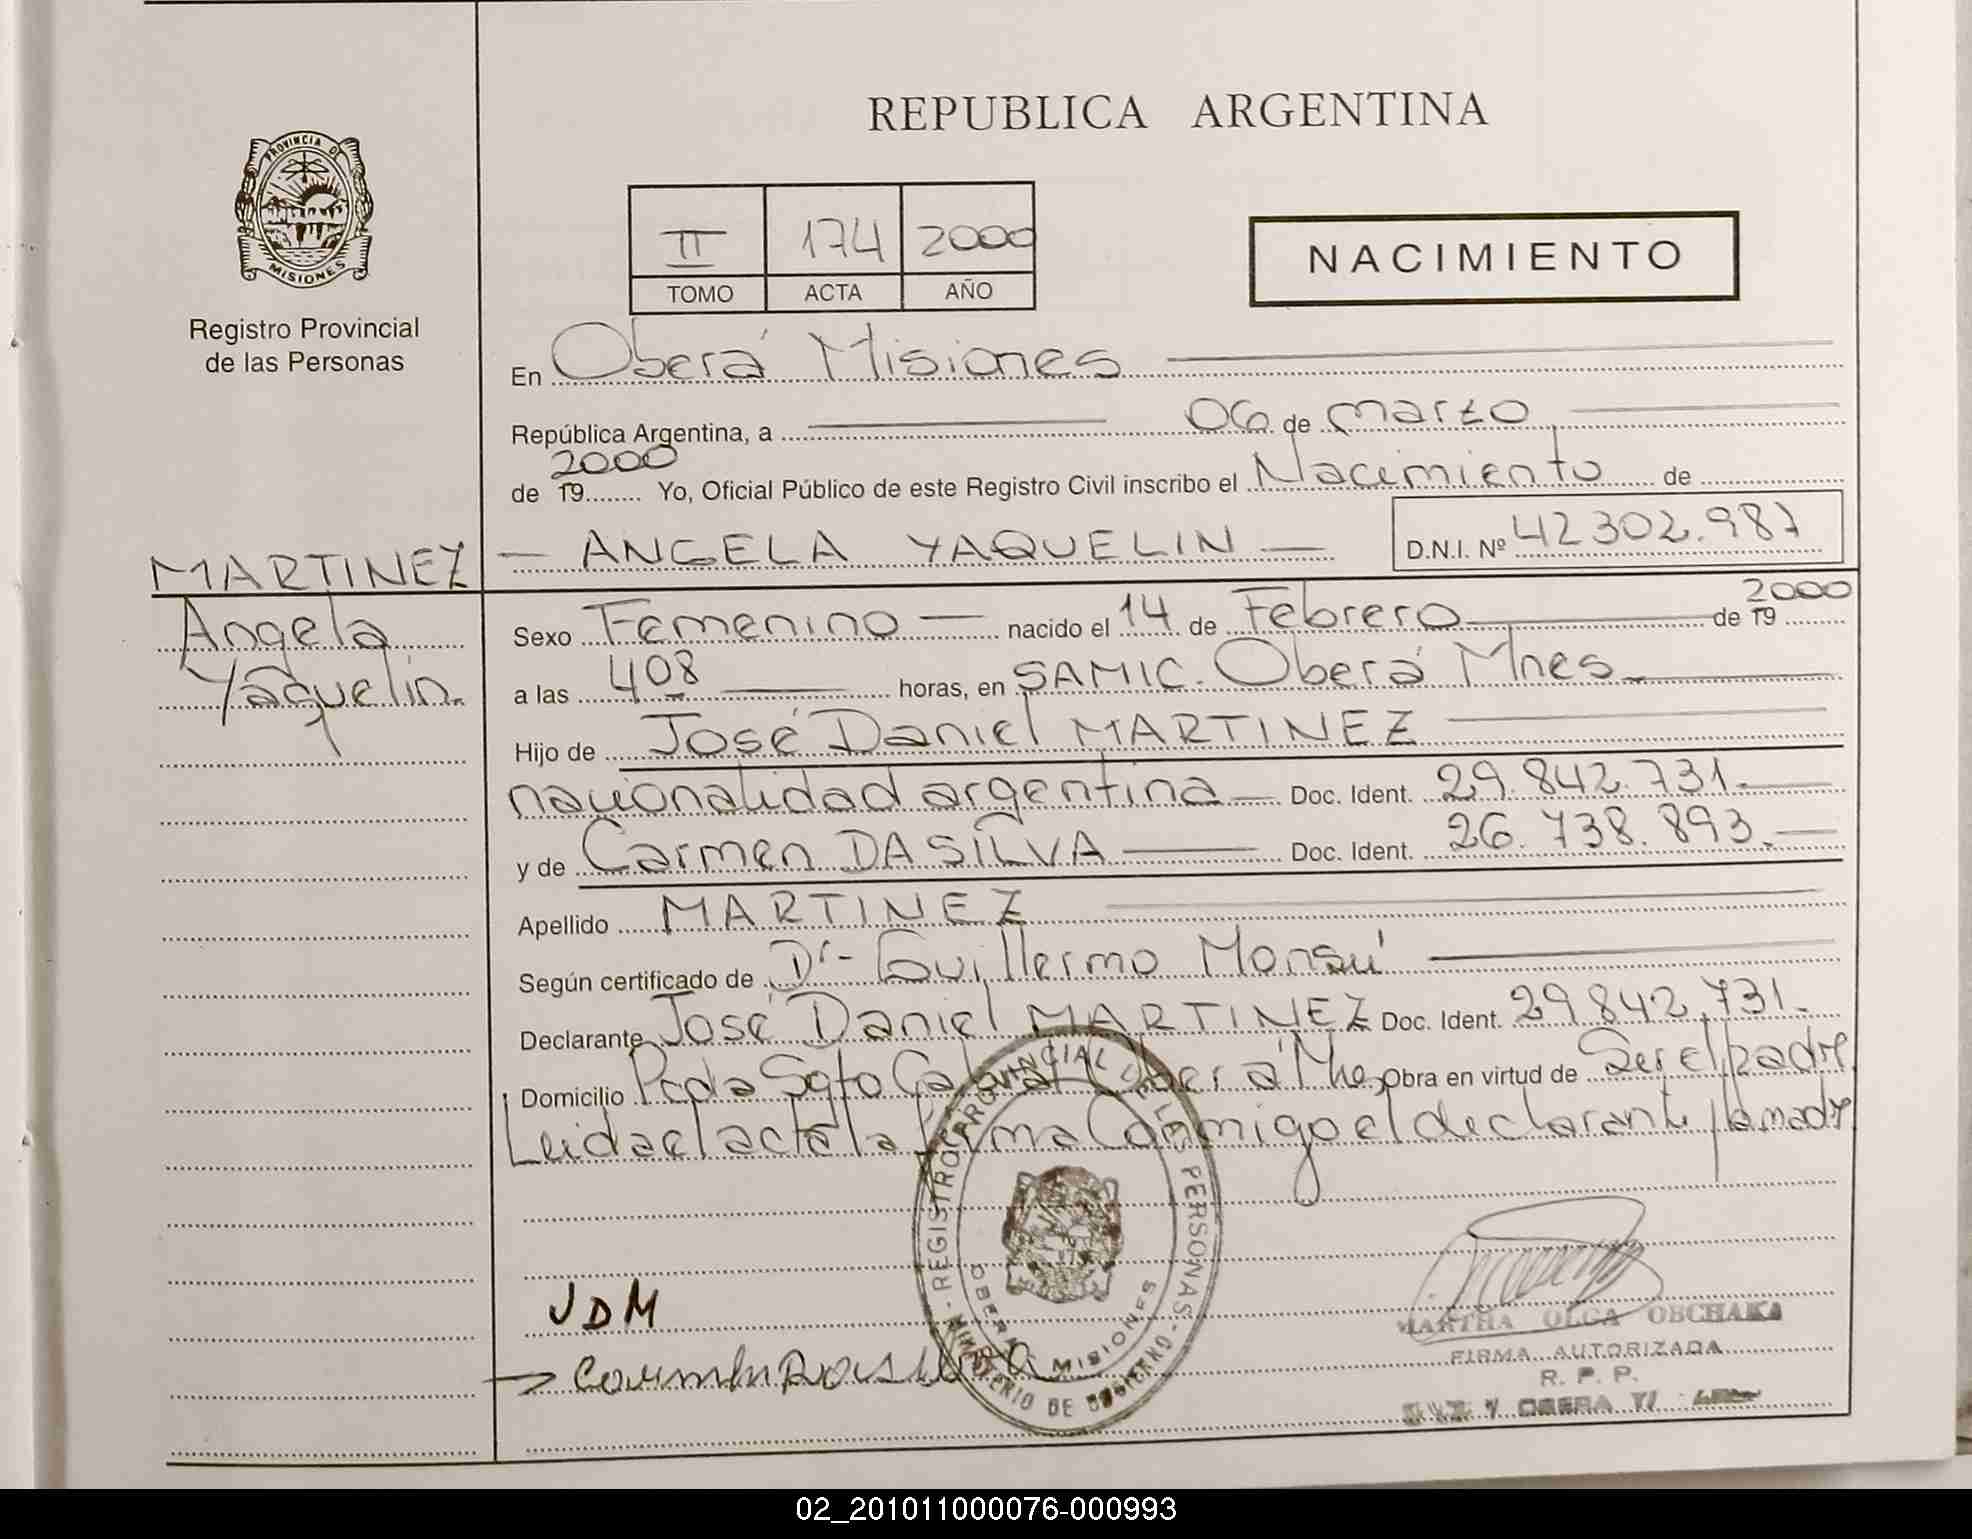 PROVINCIA DE
MISIONES
Registro Provincial
de las Personas
REPUBLICA ARGENTINA
II 174 2000
TOMO ACTA AÑO
NACIMIENTO
En Oberá Misiones
República Argentina, a 06 de marzo
2000
de 19 Yo, Oficial Público de este Registro Civil inscribo el Nacimiento de
MARTINEZ
Angela
Yaquelin.
ANGELA YAQUELIN
D.N.I. Nº 42302.987
2000
Sexo Femenino nacido el 14 de Febrero de 19
a las 408 horas, en SAMIC. Oberá Mnes.
Hijo de José Daniel MARTINEZ
nacionalidad argentina Doc. Ident. 29.842.731.
y de Carmen DA SILVA Doc. Ident. 26.738.893.
Apellido MARTINEZ
Según certificado de Dr. Guillermo Monsú
Declarante José Daniel MARTINEZ Doc. Ident. 29842.731.
Domicilio Pcda Sgto Cabral Oberá Mnes Obra en virtud de Ser el padre
Leida el acta la firma Conmigo el declarante y la madre
REGISTRO PROVINCIAL DE LAS PERSONAS
MINISTERIO DE GOBIERNO
OBERA MISIONES
JDM
MARTHA OLGA OBCHAKA
FIRMA AUTORIZADA
R. P. P.
OBERA
02_201011000076-000993